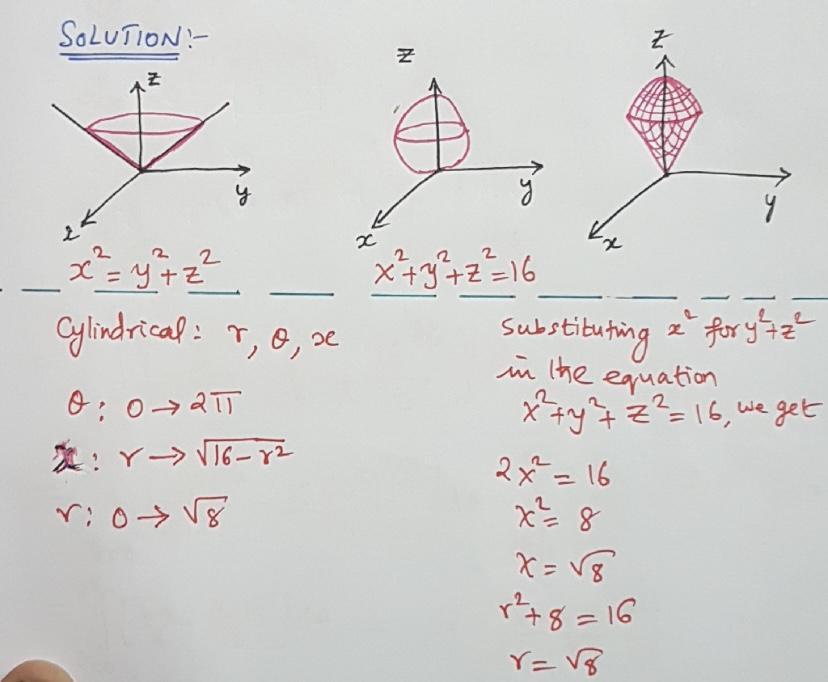 SOLUTION:-
z
y
x
x² = y² + z²
z
y
x
x² + y² + z² = 16
z
y
x
Cylindrical: r, θ, x
θ: 0 → 2π
x: r → √16 - r²
r: 0 → √8
Substituting x² for y² + z²
in the equation
x² + y² + z² = 16, we get
2x² = 16
x² = 8
x = √8
r² + 8 = 16
r = √8